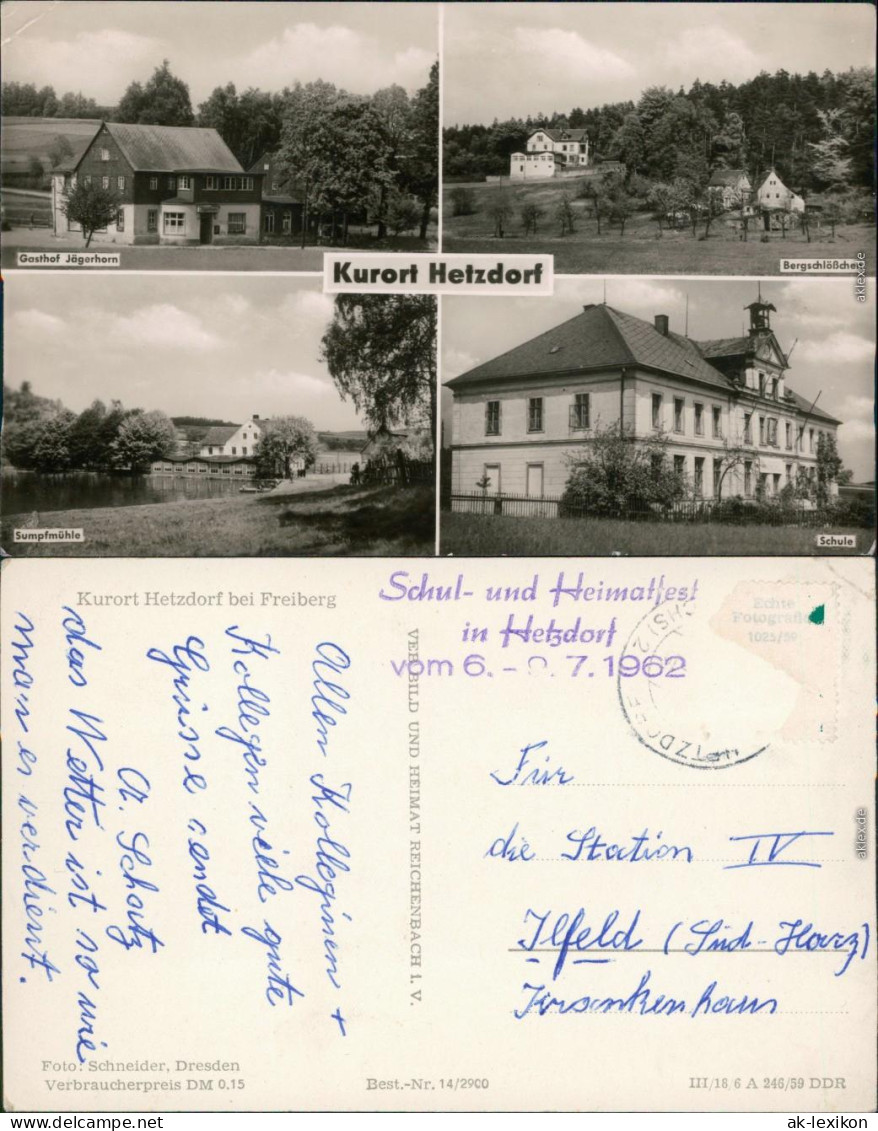 Gasthof Jägerhorn
Bergschlößchen
Kurort Hetzdorf
Sumpfmühle
Schule
aklex.de
Kurort Hetzdorf bei Freiberg
Schul- und Heimatfest
in Hetzdorf
vom 6.- 7.1962
Echte
Fotografie
1025/59
HETZDORF
Allen Kolleginen +
Kollegen viele gute
Grüsse sendet
A. Schatz
das Wetter ist so wie
man es verdient.
VEB BILD UND HEIMAT REICHENBACH I. V.
Für
die Station IV
Ilfeld (Süd-Harz)
Krankenhaus
aklex.de
Foto: Schneider, Dresden
Verbraucherpreis DM 0.15
Best.-Nr. 14/2900
III/18/6 A 246/59 DDR
ak-lexikon